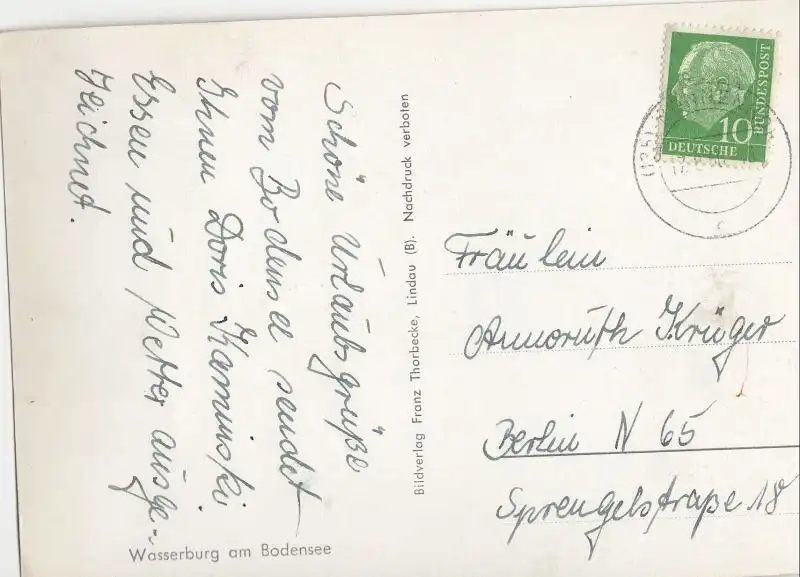 Schöne Urlaubsgrüße
vom Bodensee sendet
Ihnen Doris Kaminski.
Essen und Wetter ausge-
zeichnet.
Wasserburg am Bodensee
Bildverlag Franz Thorbecke, Lindau (B). Nachdruck verboten
DEUTSCHE
BUNDESPOST
10
Fräulein
Annoruth Krüger
Berlin N 65
Sprengelstraße 18